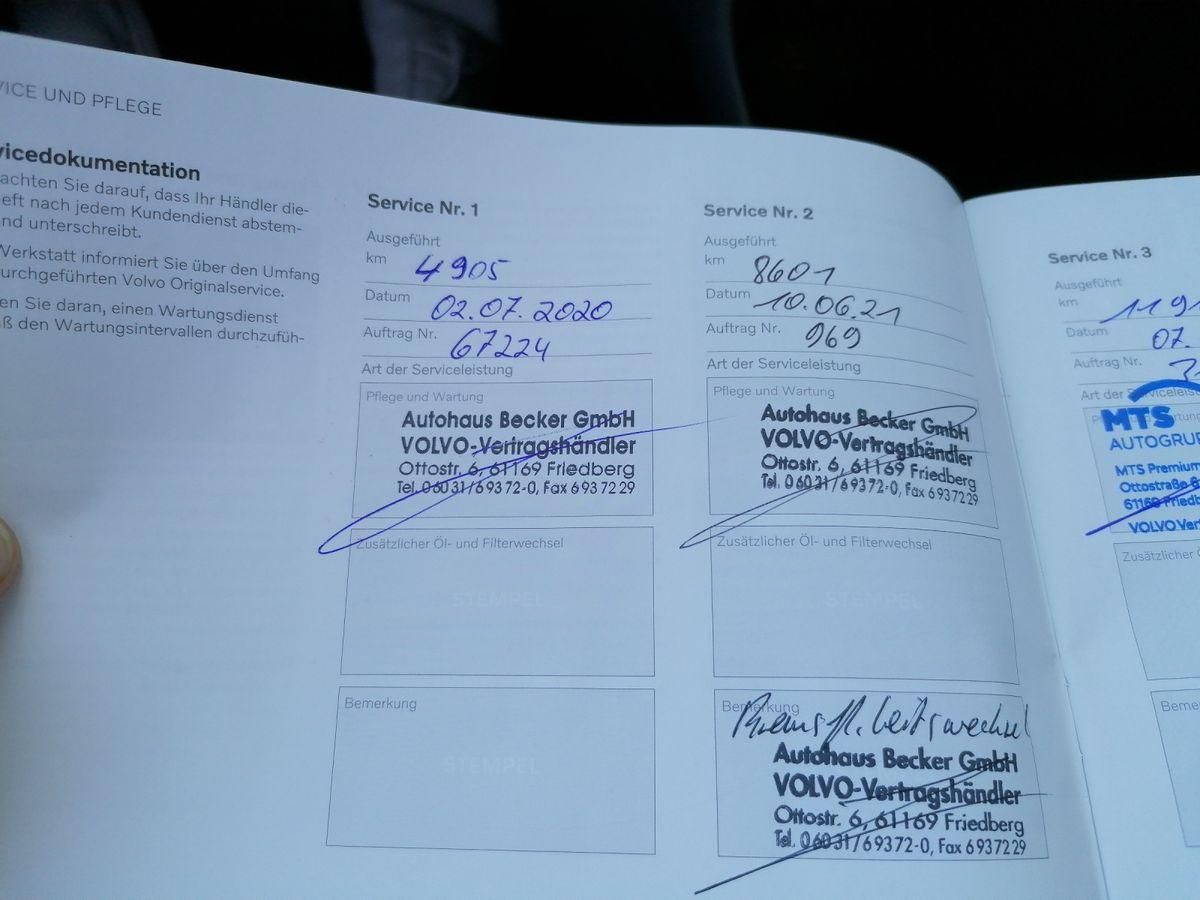 VICE UND PFLEGE
vicedokumentation
achten Sie darauf, dass Ihr Händler die-
eft nach jedem Kundendienst abstem-
nd unterschreibt.
Werkstatt informiert Sie über den Umfang
urchgeführten Volvo Originalservice.
en Sie daran, einen Wartungsdienst
ß den Wartungsintervallen durchzufüh-
Service Nr. 1
Ausgeführt
km 4905
Datum 02.07.2020
Auftrag Nr. 67224
Art der Serviceleistung
Pflege und Wartung
Autohaus Becker GmbH
VOLVO-Vertragshändler
Ottostr. 6, 61169 Friedberg
Tel. 06031/69372-0, Fax 6937229
Zusätzlicher Öl- und Filterwechsel
STEMPEL
Bemerkung
STEMPEL
Service Nr. 2
Ausgeführt
km 8601
Datum 10.06.21
Auftrag Nr. 969
Art der Serviceleistung
Pflege und Wartung
Autohaus Becker GmbH
VOLVO-Vertragshändler
Ottostr. 6, 61169 Friedberg
Tel. 06031/69372-0, Fax 6937229
Zusätzlicher Öl- und Filterwechsel
STEMPEL
Bemerkung
Bremsfl.keitswechsel
Autohaus Becker GmbH
VOLVO-Vertragshändler
Ottostr. 6, 61169 Friedberg
Tel. 06031/69372-0, Fax 6937229
Service Nr. 3
Ausgeführt
km 119
Datum 07.
Auftrag Nr. 3
Art der Serviceleis
MTS
AUTOGRUP
MTS Premium
Ottostraße 6
61169 Friedb
VOLVO Ver
Zusätzlicher Ö
Beme